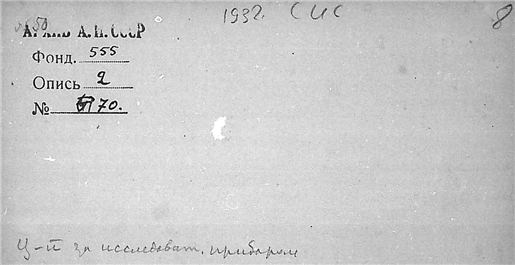 1932. СИС
8
АРХИВ А. Н. СССР
Фонд. 555
Опись 2
№ 70.
Ц-й за исследоват. прибором